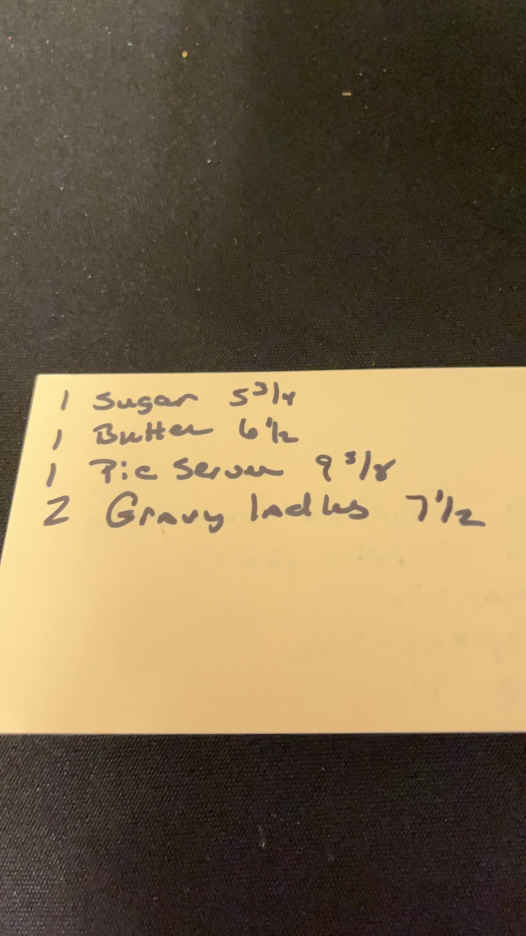 1 Sugar 5 3/4
1 Butter 6 1/2
1 Pie Server 9 3/8
2 Gravy ladles 7 1/2